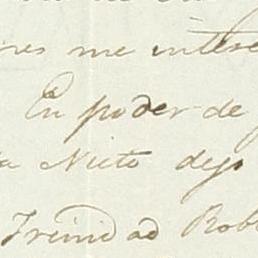 res me intere
En poder de
a Nieto dejo
Trinidad Rob